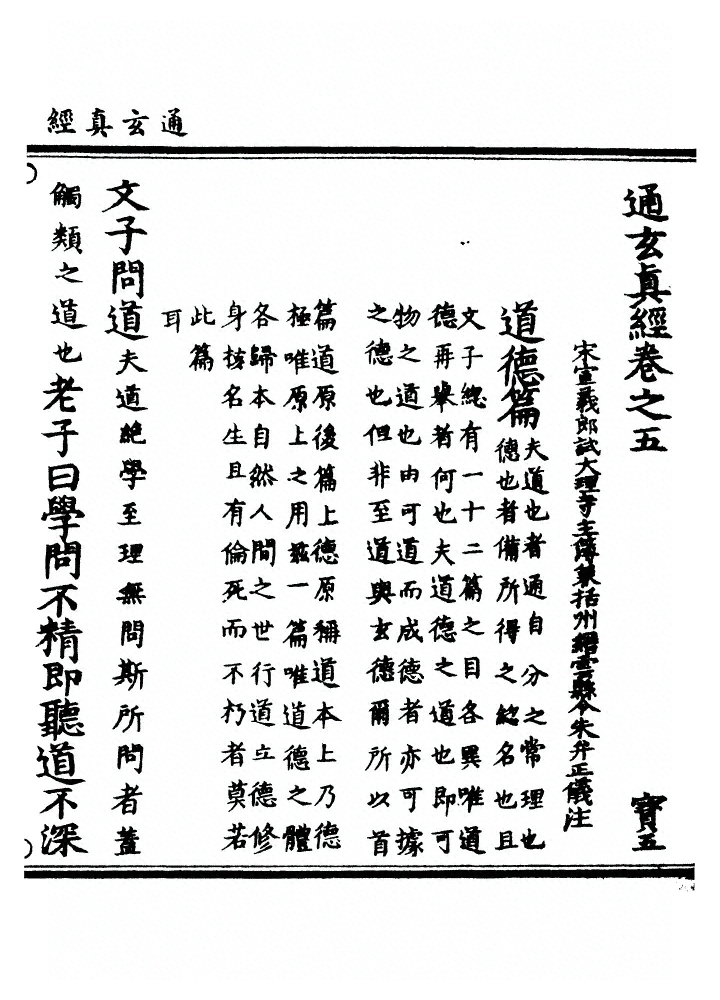 通玄真經
通玄真經卷之五 寳五
宋宣義郎試大理寺主簿兼括州縉雲縣令朱弁正儀注
道德篇
夫道也者通自分之常理也
德也者備所得之総名也且
文子総有一十二篇之目各異唯道
德再舉者何也夫道德之道也即可
物之道也由可道而成德者亦可據
之德也但非至道與玄德爾所以首
篇道原後篇上德原稱道本上乃德
極唯原上之用兹一篇唯道德之體
各歸本自然人間之世行道立德修
身核名生且有倫死而不朽者莫若
此篇
耳
文子問道夫道絕學至理無問斯所問者蓋
觸類之道也老子曰學問不精即聽道不深